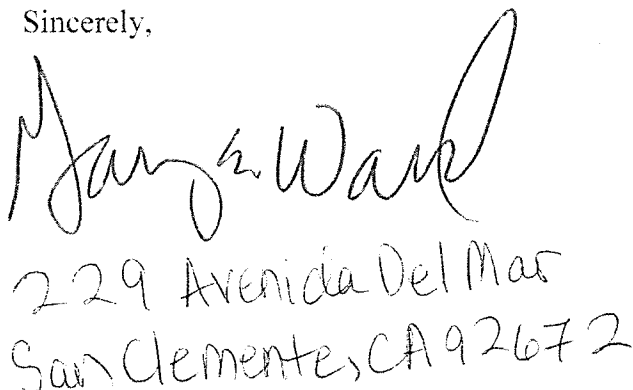 Sincerely,
Mary E. Ward
229 Avenida Del Mar
San Clemente, CA 92672